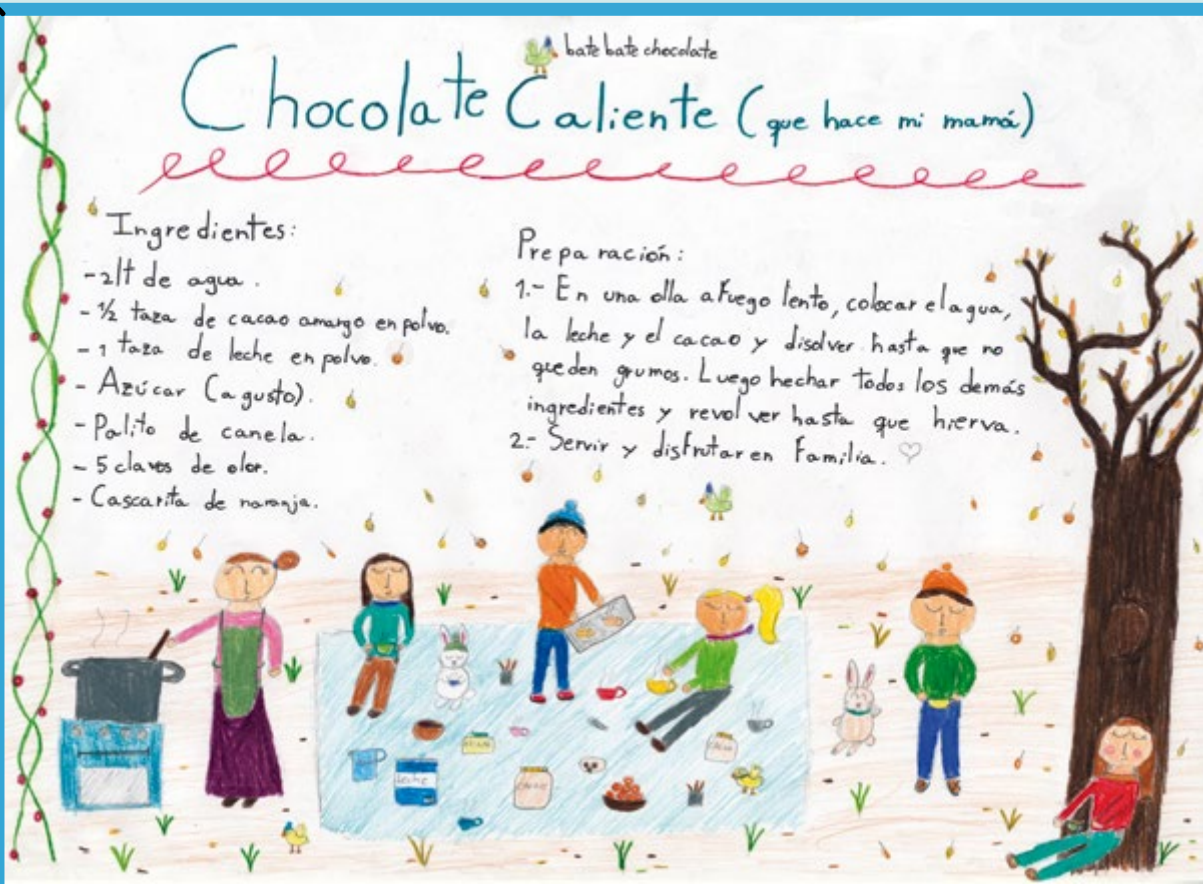 bate bate chocolate
Chocolate Caliente (que hace mi mamá)
Ingredientes:
- 2lt de agua.
- 1/2 taza de cacao amargo en polvo.
- 1 taza de leche en polvo.
- Azúcar (a gusto).
- Palito de canela.
- 5 clavos de olor.
- Cascarita de naranja.
Preparación:
1.- En una olla a fuego lento, colocar el agua,
la leche y el cacao y disolver hasta que no
queden grumos. Luego hechar todos los demás
ingredientes y revolver hasta que hierva.
2.- Servir y disfrutar en Familia. ♡
Leche